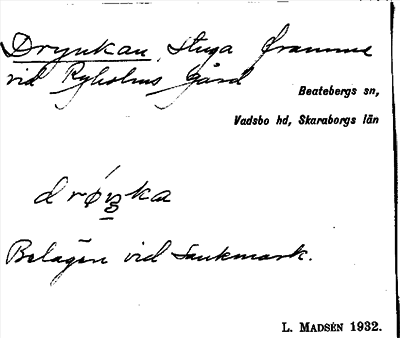 Drynkan, stuga framme
vid Ryholms gård
Beatebergs sn,
Vadsbo hd, Skaraborgs län
drøŋka
Belägen vid Sankmark.
L. MADSÉN 1932.